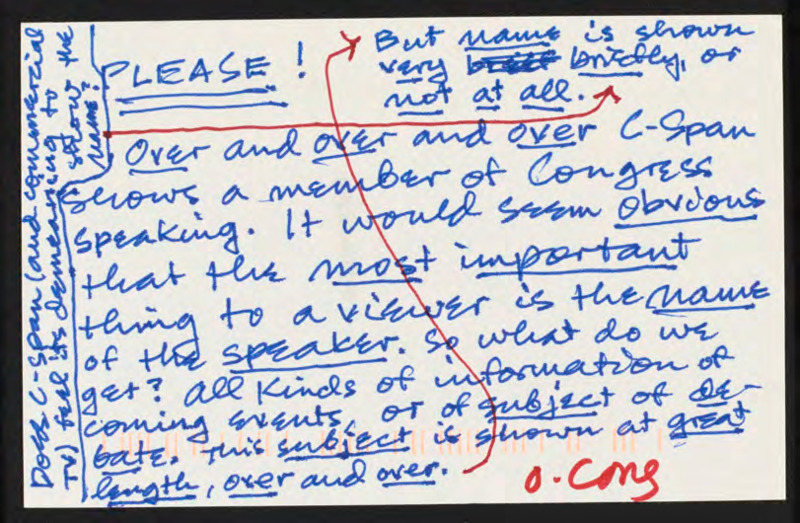 PLEASE!
Over and over and over C-Span
shows a member of Congress
speaking. It would seem obvious
that the most important
thing to a viewer is the name
of the speaker. So what do we
get? All kinds of information of
coming events, or of subject of de-
bate. This subject is shown at great
length, over and over.
But name is shown
very briefly, or
not at all.
Does C-Span (and commercial
TV) feel its demeaning to
show the
name?
O. Cong